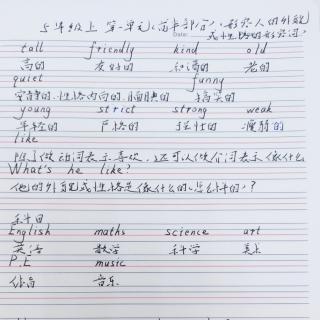 5年级上 第一单元(苹卡部分), 形容人的外貌
Date:
或性格的形容词,
tall friendly kind old
高的 友好的 和蔼的 老的
quiet funny
安静的、性格内向的、腼腆的 搞笑的
young strict strong weak
年轻的 严格的 强壮的 瘦弱的
like
除了做动词表示喜欢, 还可以做介词表示像什么
What's he like?
他的外貌或性格是像什么的(怎么样的)?
科目
English maths science art
英语 数学 科学 美术
P.E music
体育 音乐